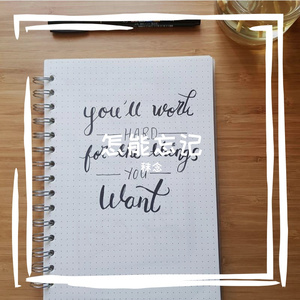 you'll work
HARD
怎能忘记
for the things
秋念
YOU
Want